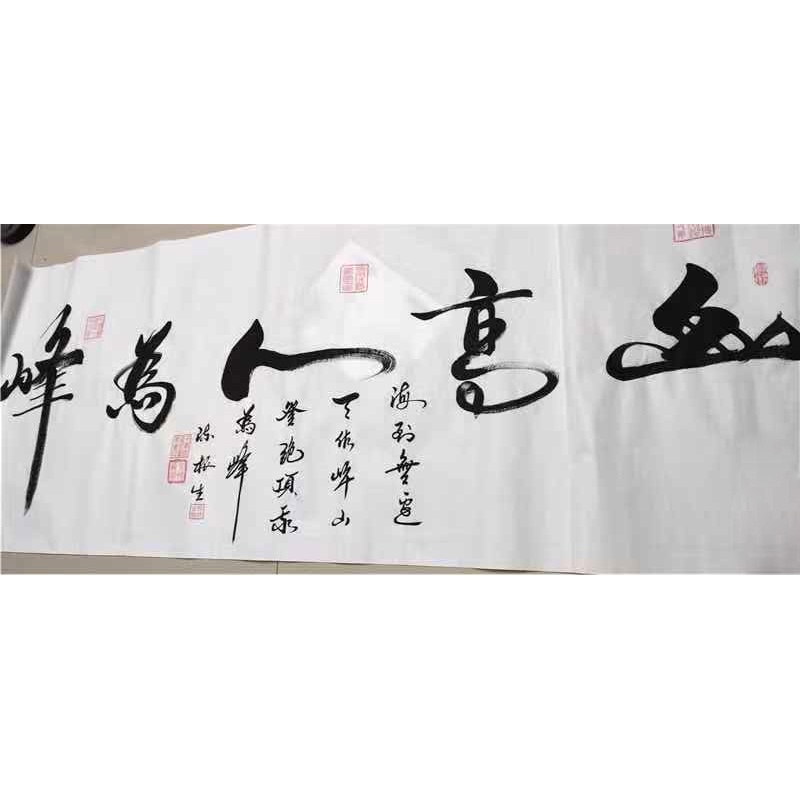 山高人為峰
海到無邊
天作岸山
登絕頂我
為峰
陈振生